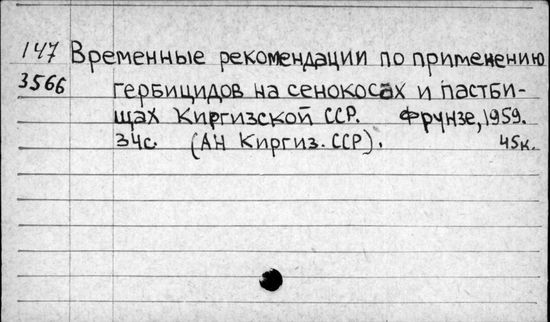 147 Временные рекомендации по применению
3566 гербицидов на сенокосах и пастби-
щах Киргизской ССР. Фрунзе, 1959.
34с. (АН Киргиз. ССР). 45к.